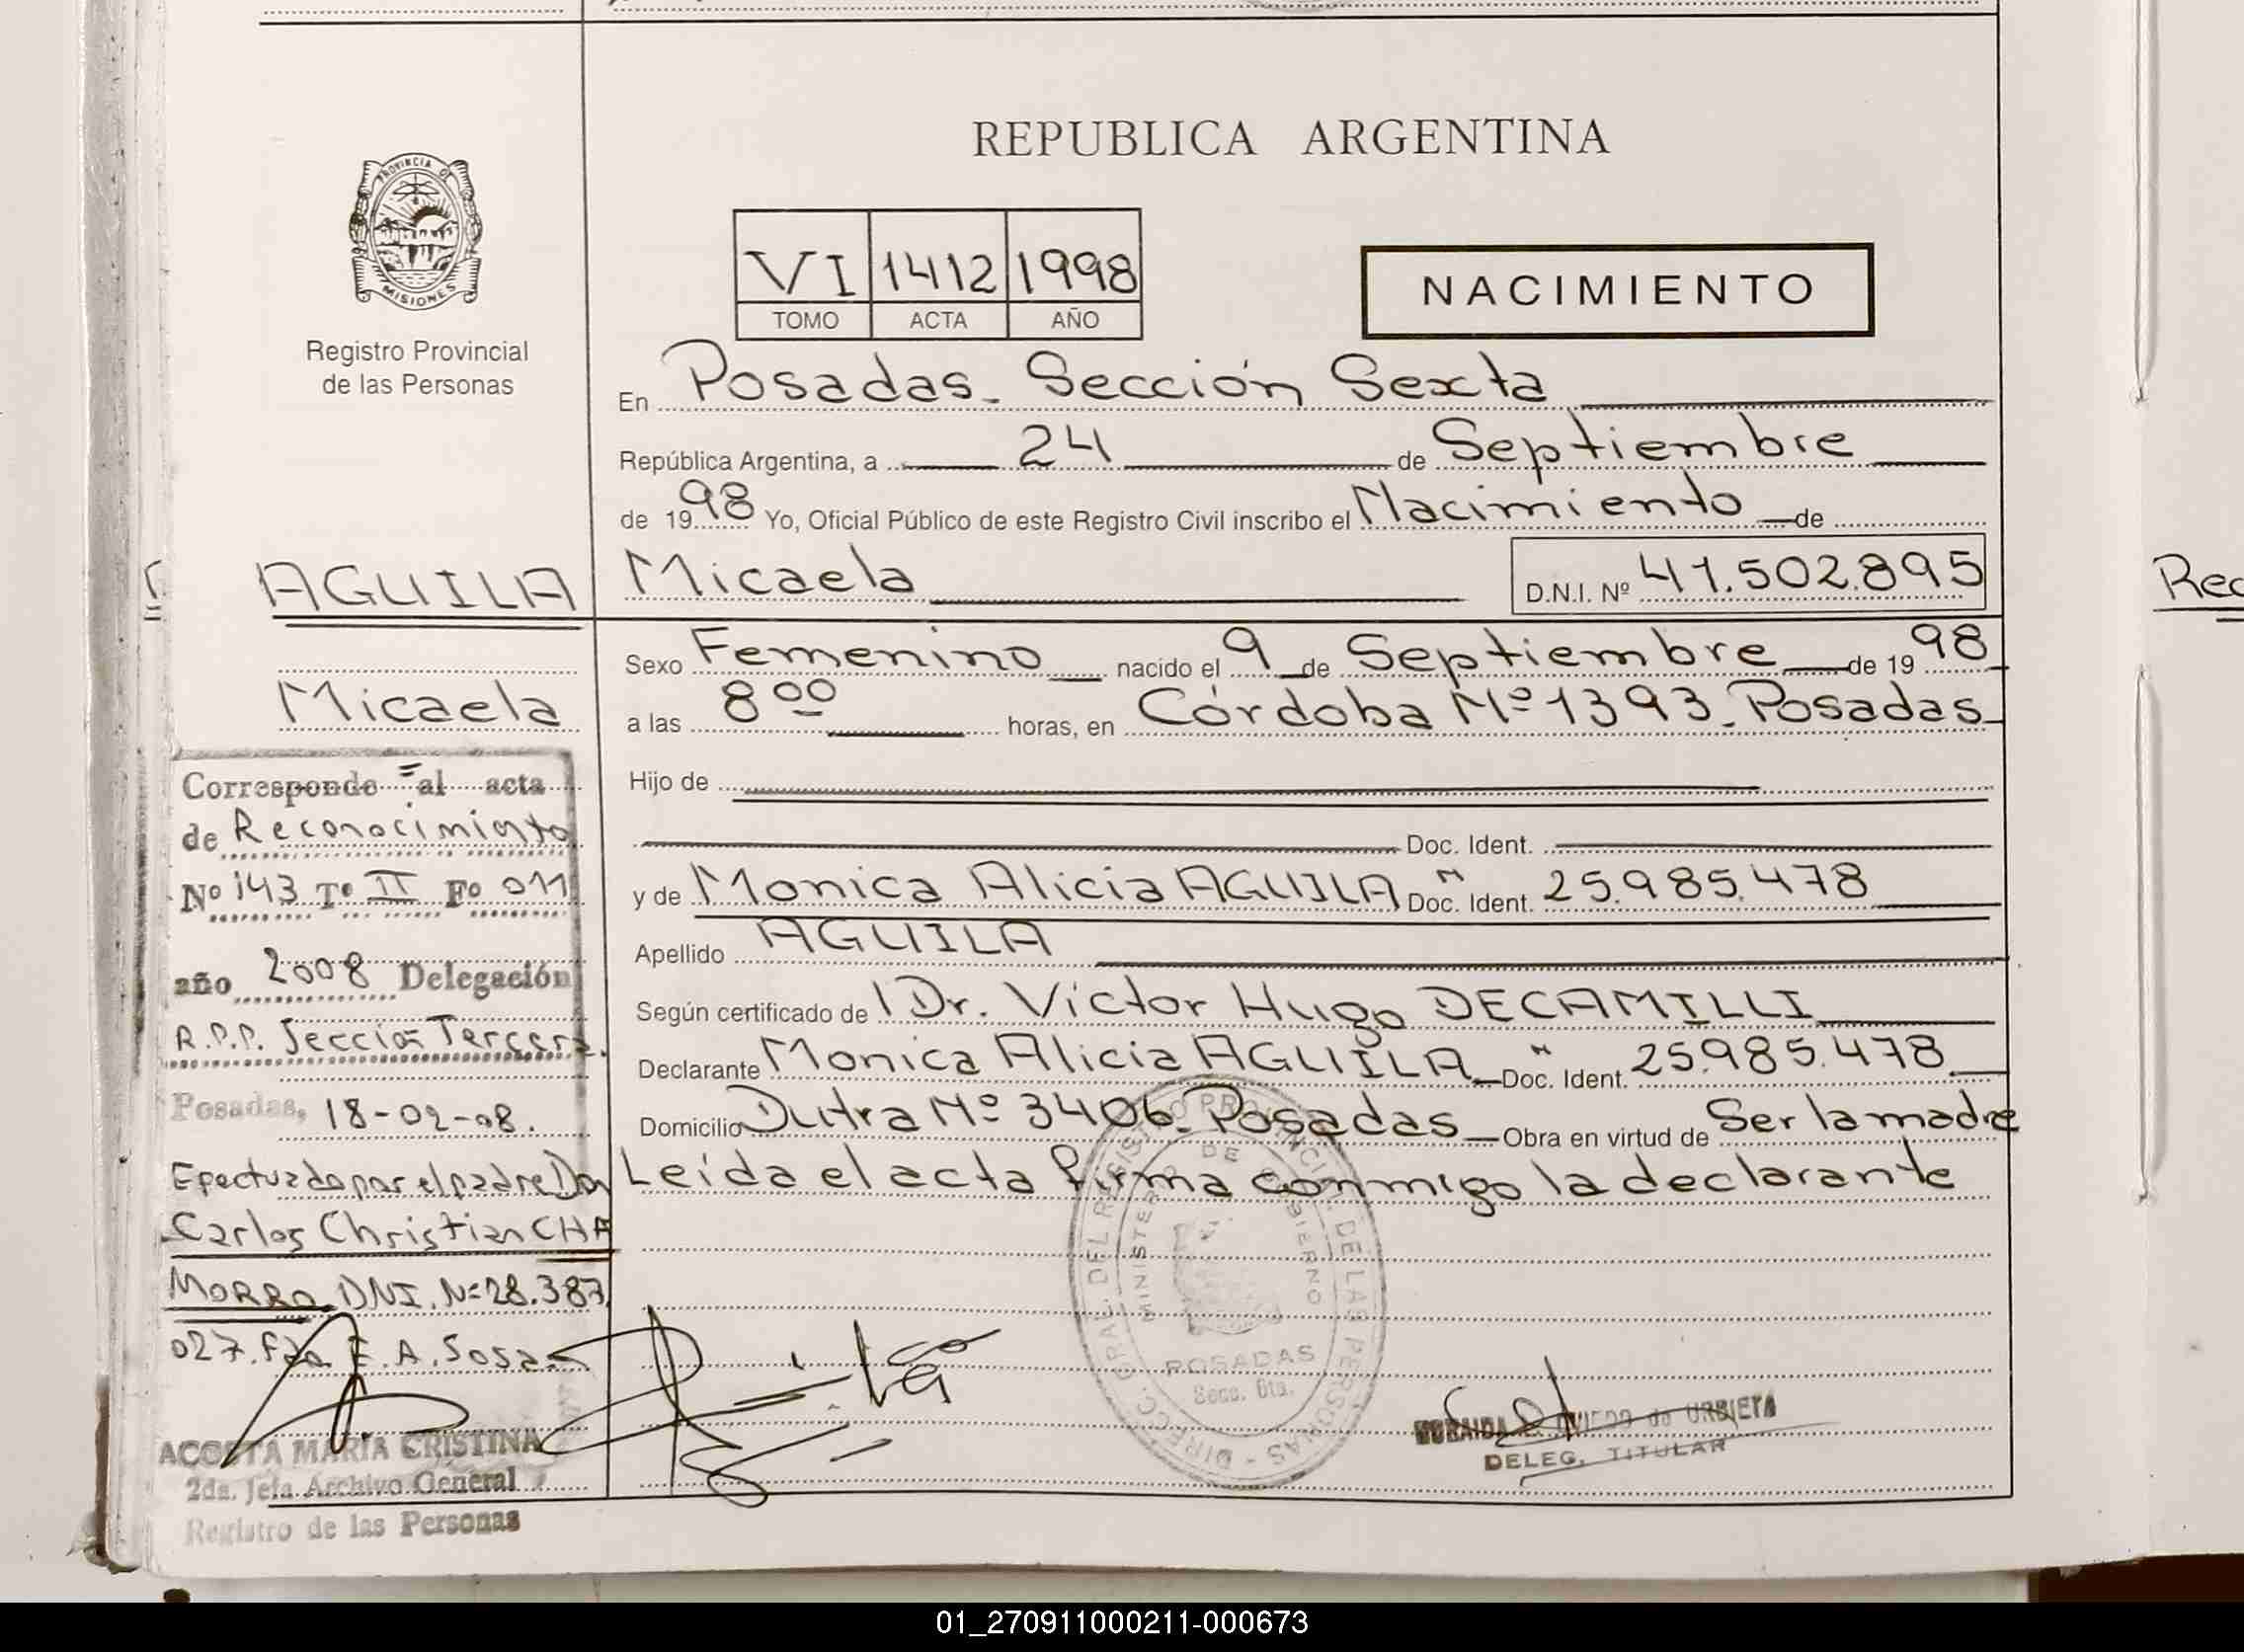 REPUBLICA ARGENTINA
PROVINCIA DE
MISIONES
Registro Provincial
de las Personas
VI 1412 1998
TOMO ACTA AÑO
NACIMIENTO
En Posadas. Sección Sexta
República Argentina, a 24 de Septiembre
de 1998 Yo, Oficial Público de este Registro Civil inscribo el Nacimiento de
AGUILA Micaela D.N.I. Nº 41.502.895
Sexo Femenino nacido el 9 de Septiembre de 1998
Micaela
a las 8 00 horas, en Córdoba Nº 1393. Posadas
Hijo de
Doc. Ident.
y de Monica Alicia AGUILA Doc. Ident. 25.985.478
Apellido AGUILA
Según certificado de l Dr. Víctor Hugo DECAMILLI
Declarante Monica Alicia AGUILA Doc. Ident. 25.985.478
Domicilio Dutra Nº 3406. Posadas Obra en virtud de Ser la madre
Leída el acta firma conmigo la declarante
Corresponde al acta
de Reconocimiento
Nº 143 Tº II Fº 011
año 2008 Delegación
R.P.P. Sección Tercera.
Posadas, 18-02-08.
Efectuado por el padre Don
Carlos Christian CHA
MORRO DNI. Nº 28.387.
027. fdo E. A. Sosa
ACOSTA MARIA CRISTINA
2da. Jefa Archivo General
Registro de las Personas
DIRECC. GRAL. DEL REGISTRO PROVINCIAL DE LAS PERSONAS
MINISTERIO DE GOBIERNO
POSADAS
Secc. 6ta.
OVIEDO de URBIETA
DELEG. TITULAR
Rec
01_270911000211-000673